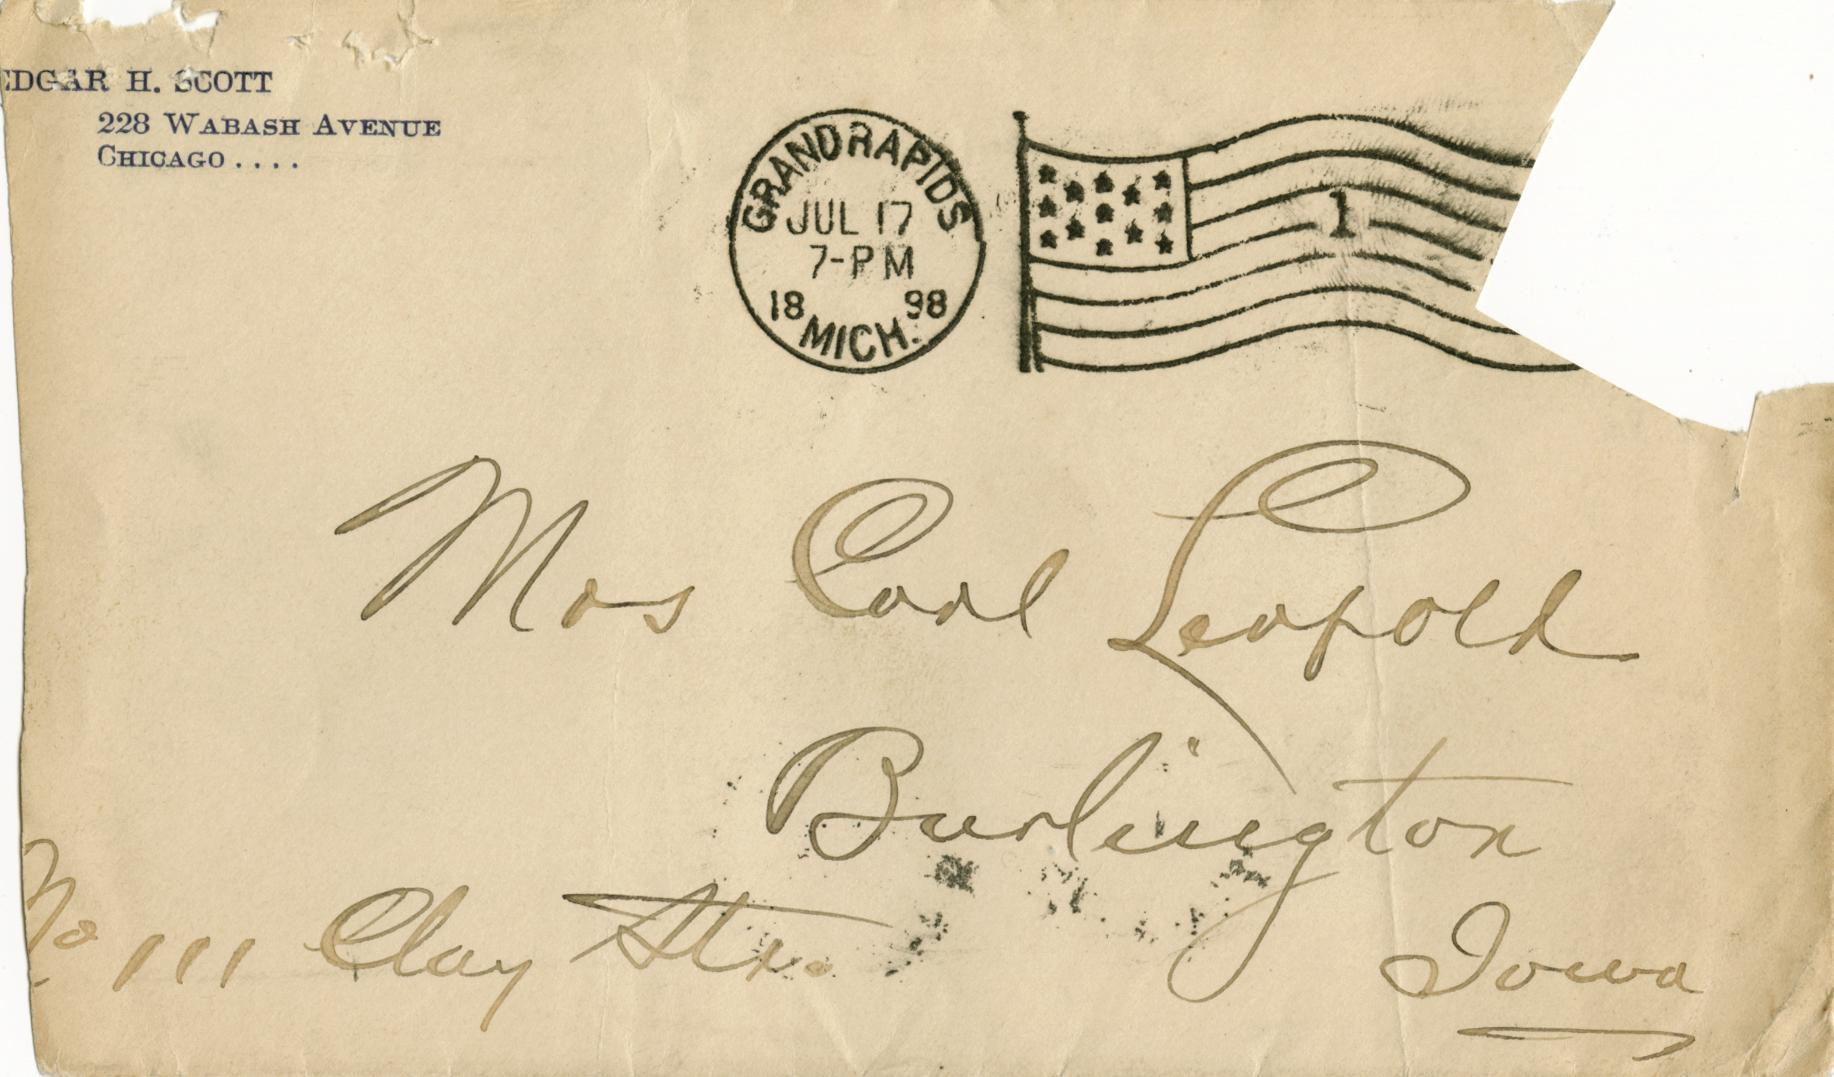 EDGAR H. SCOTT
228 WABASH AVENUE
CHICAGO....
GRAND RAPIDS
JUL 17
7-PM
18 98
MICH.
1
Mrs Carl Leopold
Burlington
Iowa
No 111 Clay Str.